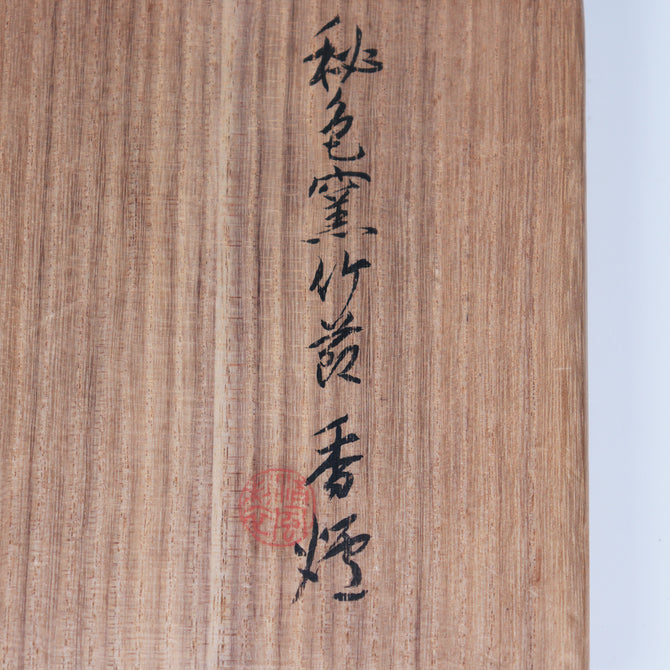 秘色窯竹節香炉